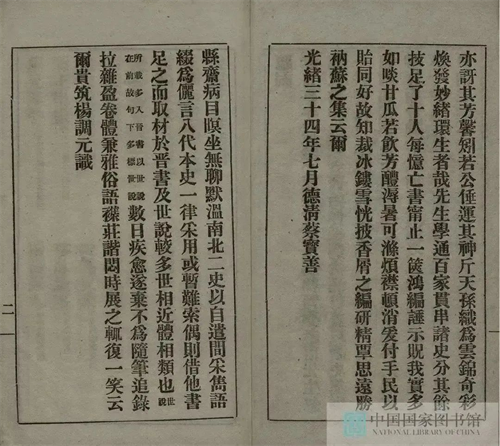 亦訝其芳馨矧若公倕運其神斤天孫織爲雲錦奇彩
煥發妙緒環生者哉先生學通百家貫串諸史分其餘
技足了十人每憶亡書甯止一篋鴻編誰示貺我實多
如啖甘瓜若飲芳醴溽暑可滌煩襟頓消爰付手民以
貽同好故知裁冰鏤雪恍披香屑之編研精覃思遠勝
衲蘇之集云爾
光緒三十四年七月德清蔡寶善
縣齋病目瞑坐無聊默溫南北二史以自遣間采雋語
綴爲儷言八代本史一律采用或暫難索偶則借他書
足之而取材於晉書及世說較多世相近體相類也世說
所載多入晉書以世說
在前故句下多標世說數日疾愈遂棄不爲隨筆追錄
拉雜盈卷體兼雅俗語襍莊諧悶時展之輒復一笑云
爾貴筑楊調元識
二
中国国家图书馆
NATIONAL LIBRARY OF CHINA